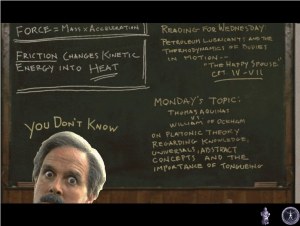 FORCE = MASS × ACCELERATION
FRICTION CHANGES KINETIC
ENERGY INTO HEAT
YOU DON'T KNOW
READING FOR WEDNESDAY
PETROLEUM LUBRICANTS AND THE
THERMODYNAMICS OF BODIES
IN MOTION--
"THE HAPPY SPOUSE"
CPT IV-VII
MONDAY'S TOPIC:
THOMAS AQUINAS
VS
WILLIAM OF OCKHAM
ON PLATONIC THEORY
REGARDING KNOWLEDGE,
UNIVERSALS, ABSTRACT
CONCEPTS AND THE
IMPORTANCE OF TONGUEING